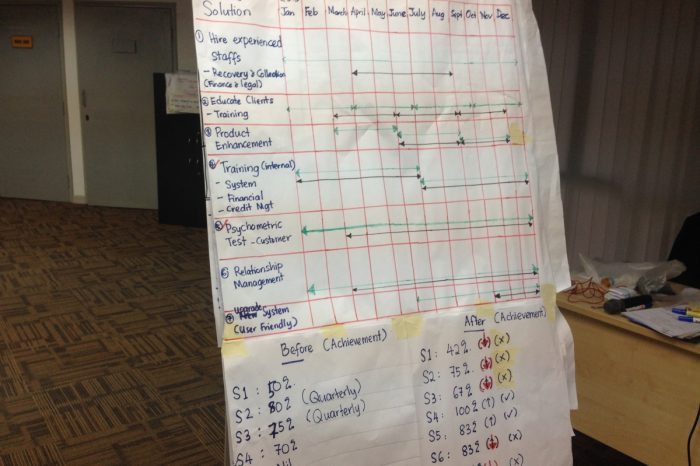 Solution Jan Feb March April May June July Aug Sept Oct Nov Dec
① Hire experienced
Staffs
- Recovery & Collection
(Finance & legal)
② Educate Clients
- Training
③ Product
Enhancement
④ Training (internal)
- System
- Financial
- Credit Mgt
⑤ Psychometric
Test - Customer
⑥ Relationship
Management
upgrade
⑦ New System
(User Friendly)
Before (Achievement)
S1 : 50%
S2 : 80% (Quarterly)
S3 : 75% (Quarterly)
S4 : 70%
Nil
After (Achievement)
S1: 42% (↓) (x)
S2: 75% (↓) (x)
S3: 67% (↓) (x)
S4: 100% (↑) (✓)
S5: 83% (↑) (✓)
S6: 83% (↓) (x)